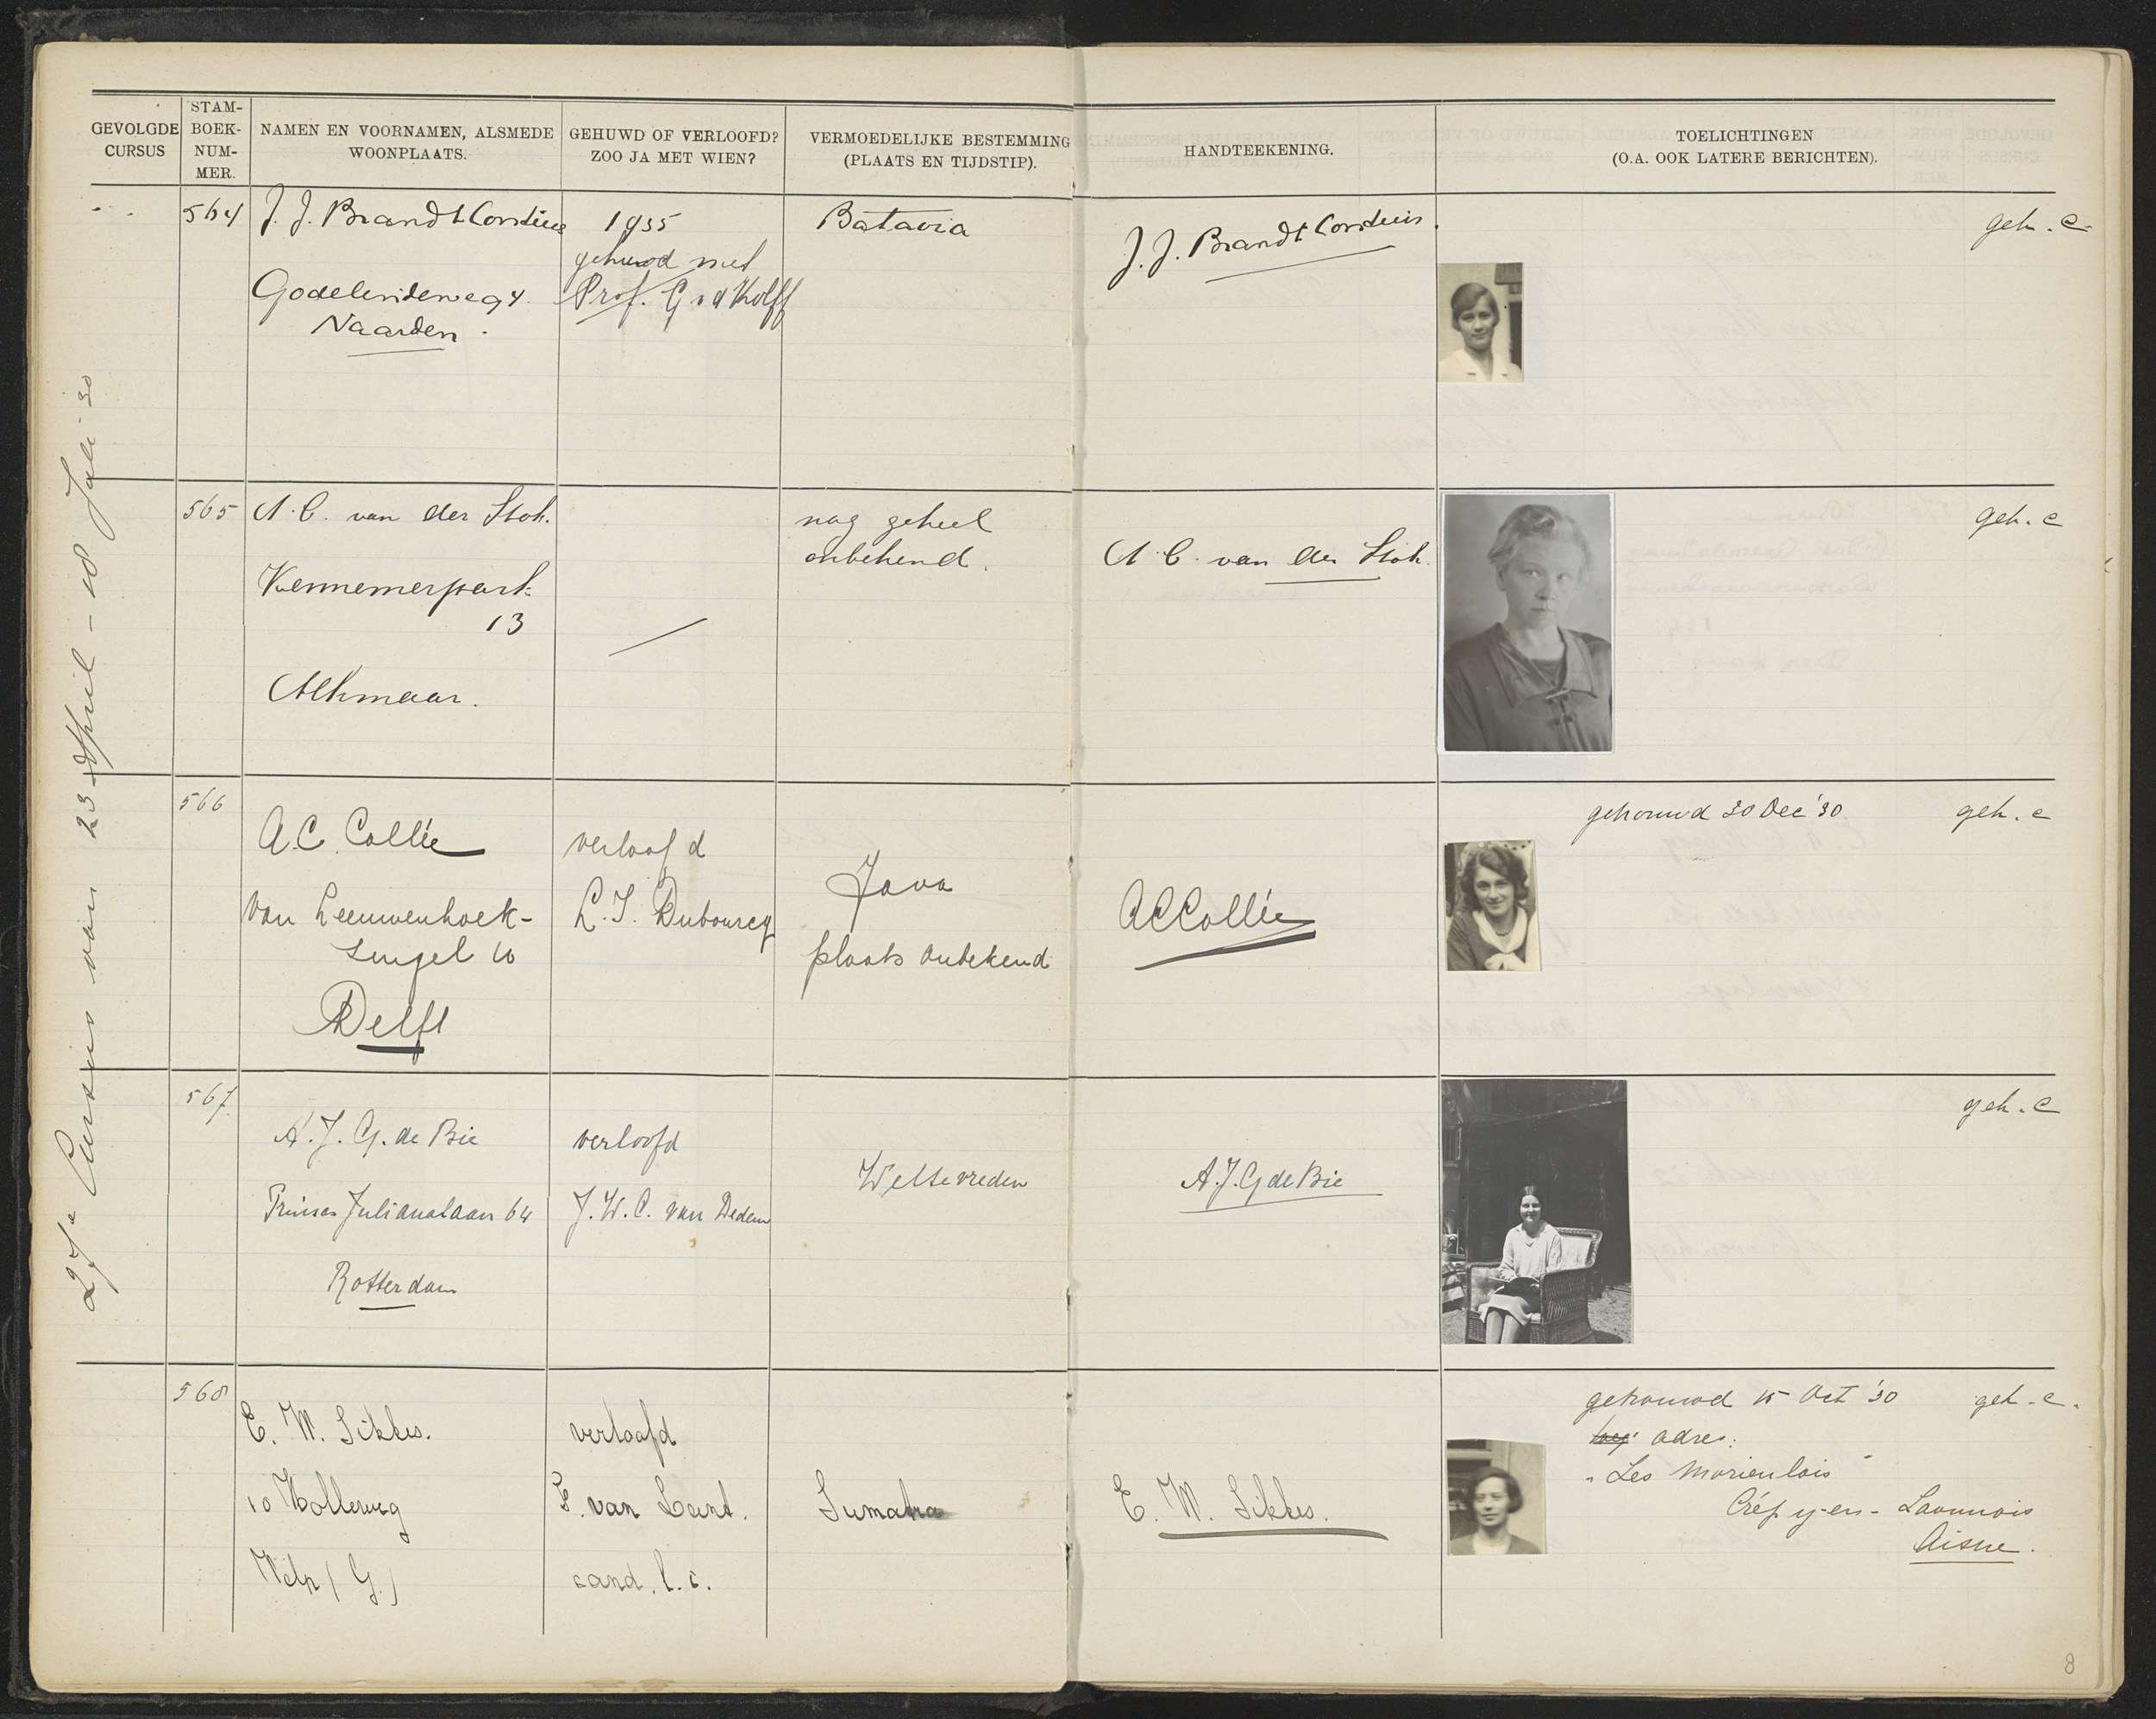 GEVOLGDE CURSUS
STAM-BOEK-NUM-MER.
NAMEN EN VOORNAMEN, ALSMEDE WOONPLAATS.
GEHUWD OF VERLOOFD? ZOO JA MET WIEN?
VERMOEDELIJKE BESTEMMING (PLAATS EN TIJDSTIP).
HANDTEEKENING.
TOELICHTINGEN (O.A. OOK LATERE BERICHTEN).
27e Cursus van 23 April - 18 Juli - 30
564
J. J. Brandt Corstius
Godelindeweg 4
Naarden.
1935
gehuwd met
Prof. G v d Kolff
Batavia
J. J. Brandt Corstius.
geh. c
565
A. C. van der Stok.
Kennemerpark
13
Alkmaar.
nog geheel
onbekend.
A C. van der Stok.
geh. c
566
A.C. Collée
Van Leeuwenhoek-
singel 10
Delft
verloofd
L. J. Dubourcq
Java
plaats onbekend
A C Collée
getrouwd 30 Dec '30
geh. c
567
A. J. G. de Bie
Prinses Julianalaan 64
Rotterdam
verloofd
J. W. C. van Dedem
Weltevreden
A. J. G de Bie
geh. c
568
E. W. Sikkes.
10 Kolleweg
Velp (G.)
verloofd
F. van Lart.
cand. l. i.
Sumatra
E. W. Sikkes.
getrouwd 15 Oct '30
geh. c.
adres:
"Les Morienlois"
Crépy-en-Laonnois
Aisne.
8